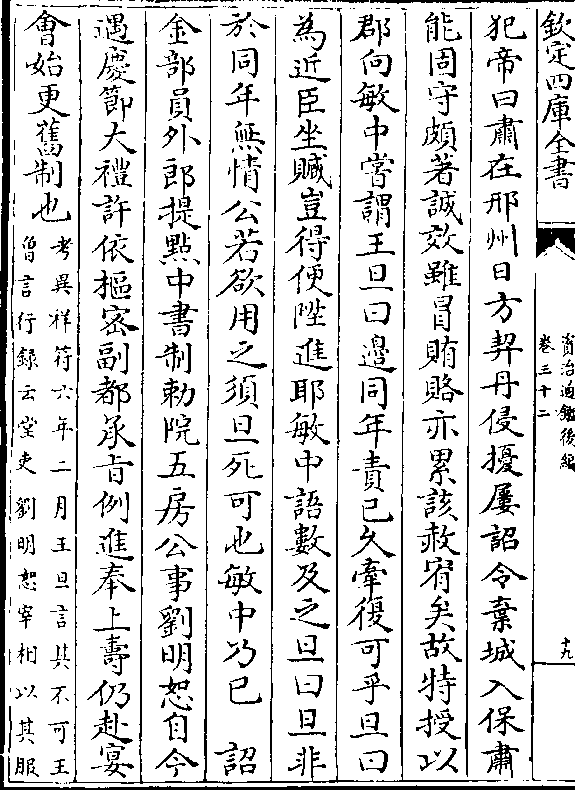 欽定四庫全書
資治通鑑後編
卷三十二
十九
犯帝曰肅在邢州日方契丹侵擾屢詔令棄城入保肅
能固守頗著誠效雖冒賄賂亦累該赦宥矣故特授以
郡向敏中嘗謂王旦曰邊同年責已久牽復可乎旦曰
為近臣坐贓豈得便陞進耶敏中語數及之旦曰旦非
於同年無情公若欲用之須旦死可也敏中乃已　詔
金部員外郎提點中書制勅院五房公事劉明恕自今
遇慶節大禮許依樞密副都承旨例進奉上壽仍赴宴
會始更舊制也
考異祥符六年二月王旦言其不可王
曾言行錄云堂吏劉明恕宰相以其服